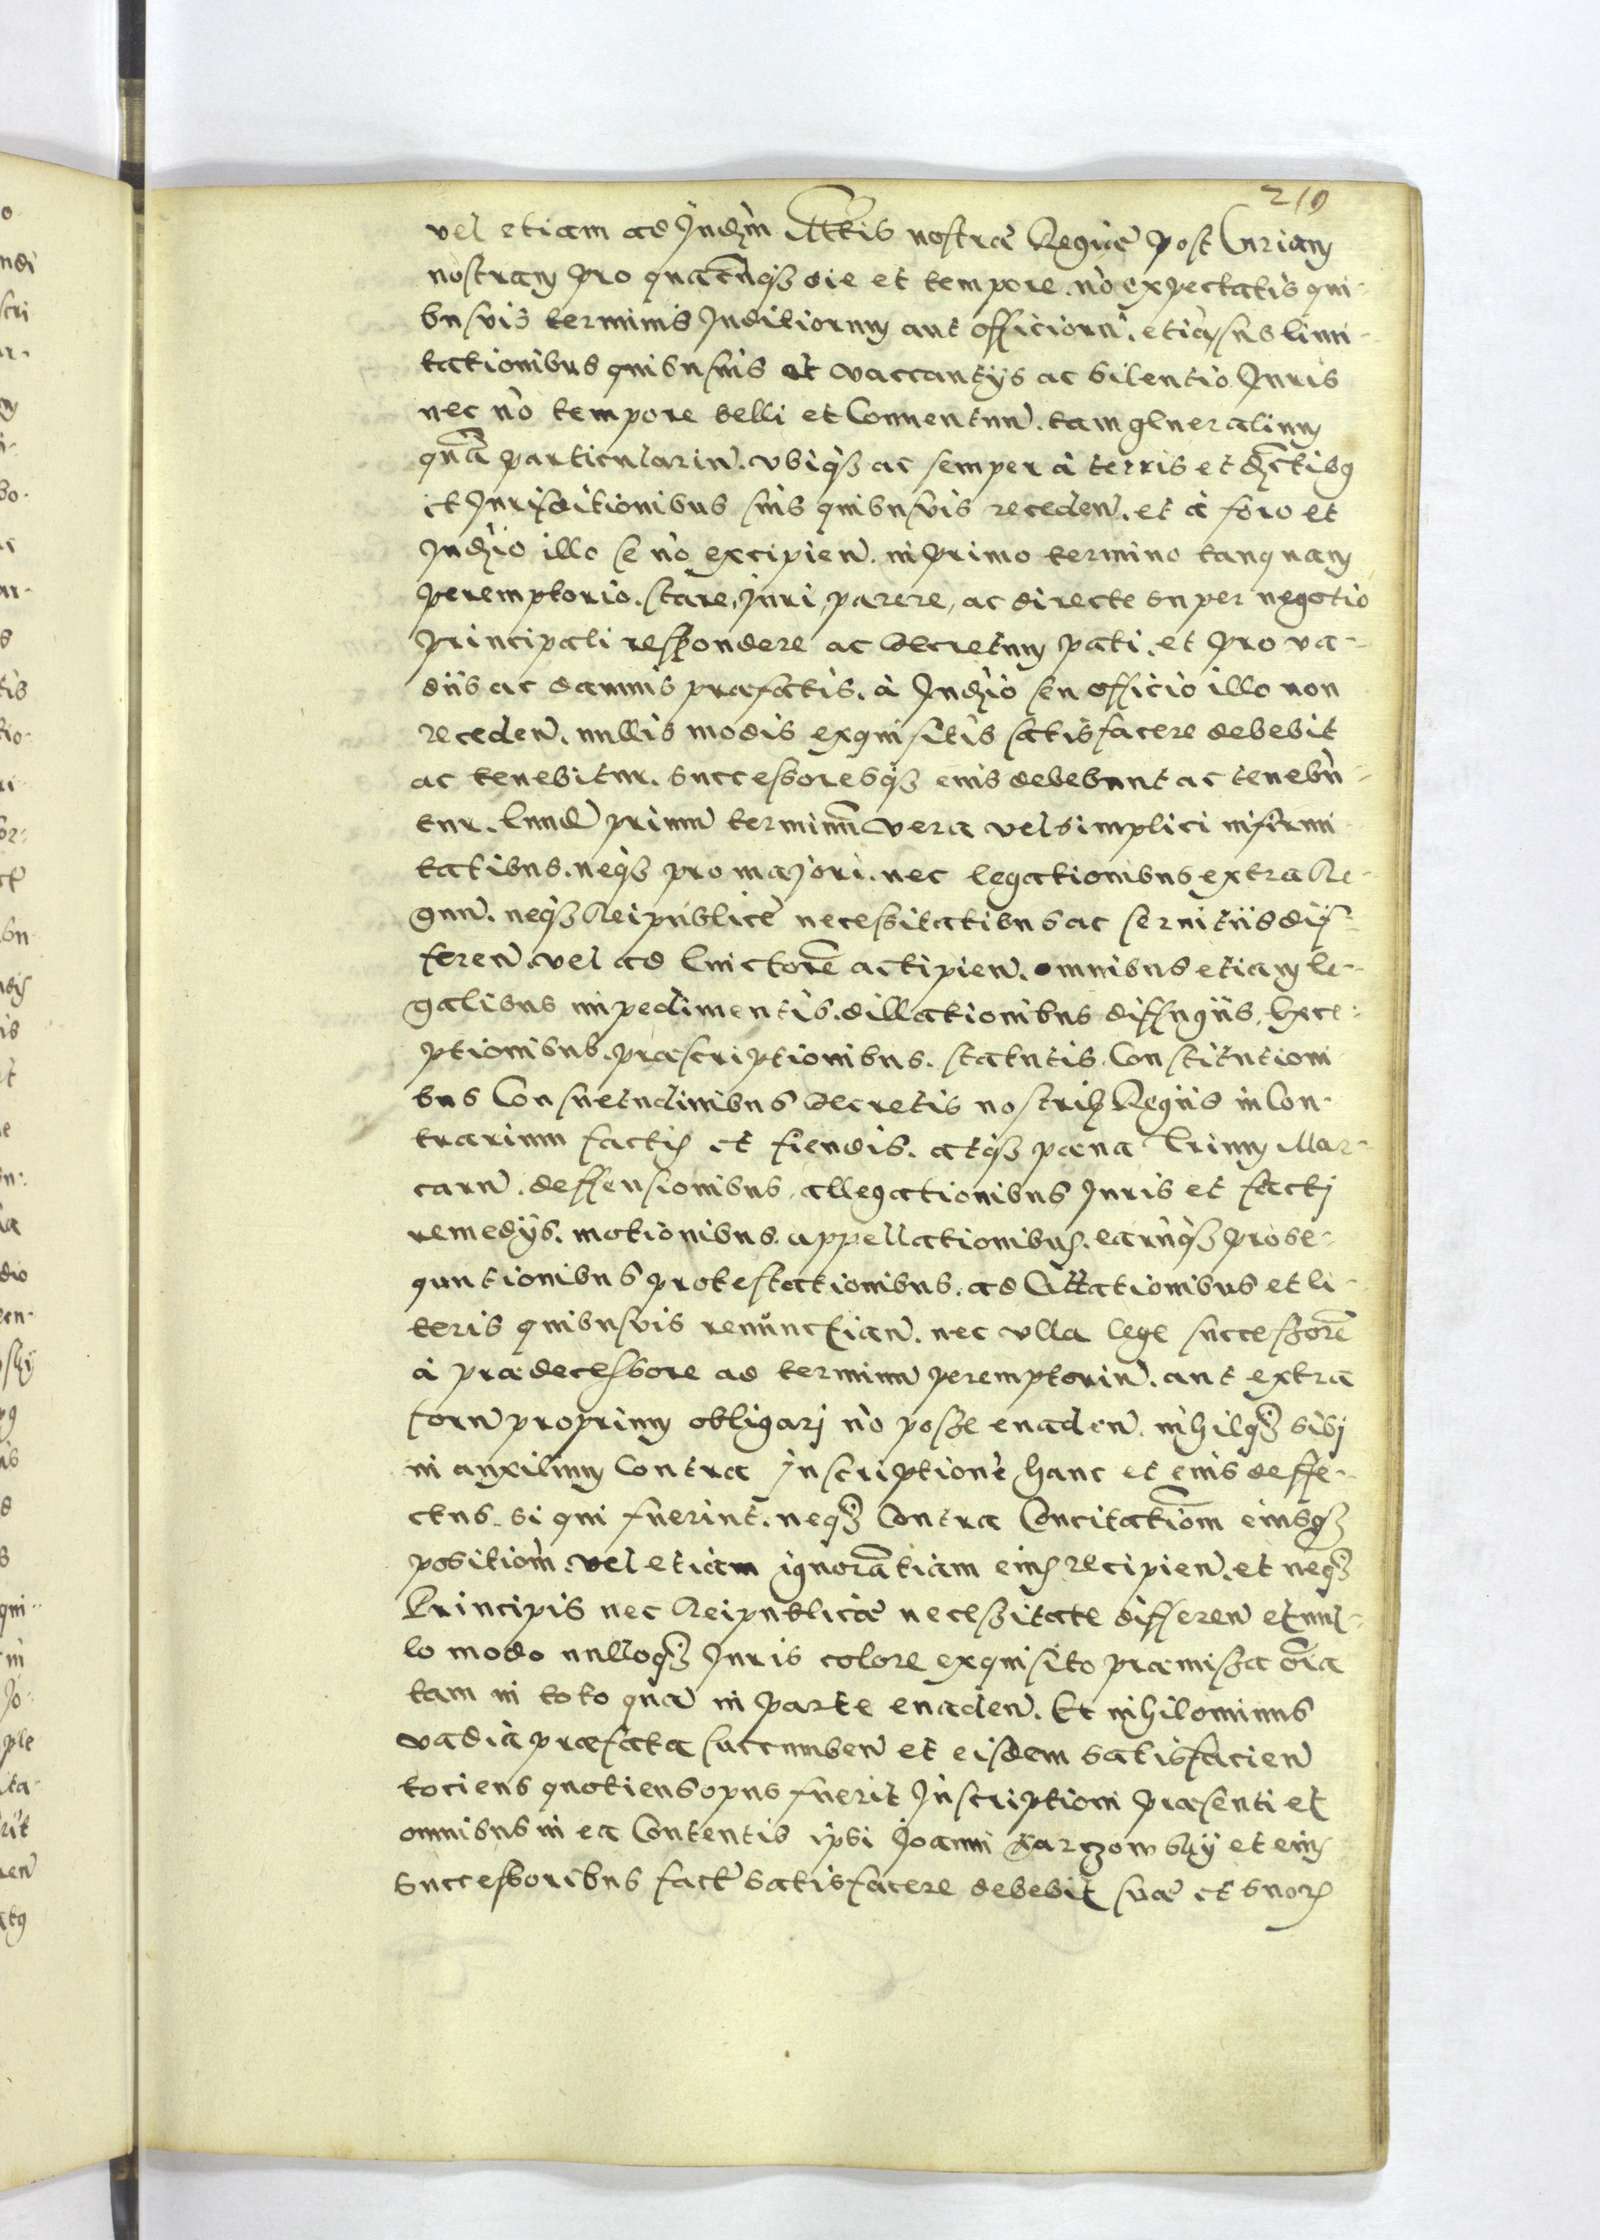 219
vel etiam ad Judȝm Mttis nostræ Regiæ post Curiam
nostram pro quacunqȝ die et tempore, nō expectatis qui-
busuis terminis Juditiorum aut officiorū, etiā suis limi-
tationibus quibusuis et vaccantijs ac silentio Juris
nec nō tempore belli et Conuentuū, tam generalium
quā particulariū, vbiqȝ ac semper à terris et dȝctibꝯ
et Jurisditionibus suis quibusuis receden̄, et à foro et
Judȝio illo se nō excipien̄, in primo termino tanquam
peremptorio, stare, juri parere, ac directe super negotio
principali respondere ac decretum pati, et pro va-
diis ac damnis præfatis, à Judȝio seu officio illo non
receden̄, nullis modis exquisitis satisfacere debebit
ac tenebitur, successoresqȝ eius debebunt ac tenebū-
tur. Eund̄ primū terminū vera vel simplici infirmi-
tatibus, neqȝ pro majori, nec legationibus extra Re-
gnū, neqȝ Reipublicæ necessitatibus ac seruitiis dif-
feren̄, vel ad Euictorē accipien̄, omnibus etiam le-
galibus impedimentis, dillationibus diffugiis, Exce-
ptionibus, præscriptionibus, statutis Constitutioni-
bus Consuetudinibus decretis nostris Regiis in Con-
trarium factis et fiendis, atqȝ pœna Trium Mar-
carū, deffensionibus, allegationibus Juris et facti
remedijs, motionibus, appellationibus, earūqȝ prose-
quutionibus protestationibus, ad Cittationibus et li-
teris quibusuis renunctian̄, nec vlla lege successorē
à prædecessore ad terminū peremptoriū, aut extra
forū proprium obligari nō posse euaden̄, nihilqȝ sibi
in auxilium Contra Inscriptionē hanc et eius deffe-
ctus si qui fuerint, neqȝ Contra Concitatiom̄ eiusqȝ
positiom̄, vel etiam ignorātiam eius recipien̄, et neqȝ
Principis nec Reipublicæ necessitate differen̄ et nul-
lo modo nulloqȝ Juris colore exquisito præmissa oīa
tam in toto quā in parte euaden̄. Et nihilominus
vadia præfata succumben̄ et eisdem satisfacien̄
tociens quotiens opus fuerit Inscriptioni præsenti et
omnibus in ea Contentis ipsi Joanni et eius
Successoribus factē satisfacere debebit suæ et suorꝝ